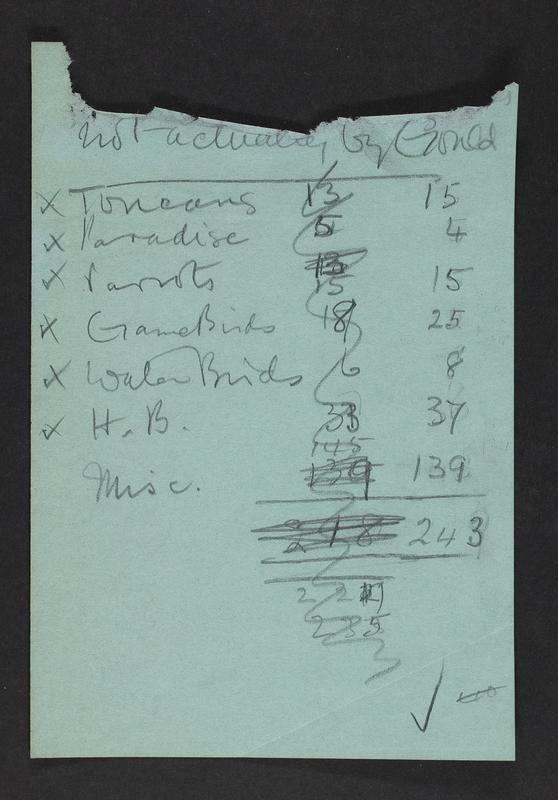 not actually by Gould
x Toucans 13 15
x Paradise 5 4
x Parrots 15 15
x Game Birds 18 25
x Water Birds 6 8
x H.B. 33 37
145
Misc. 139 139
218 243
235